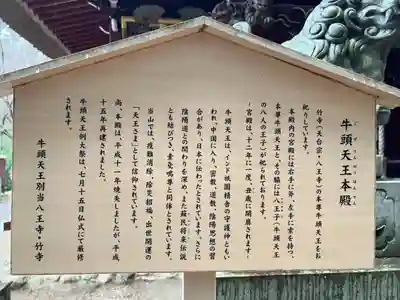 牛頭天王本殿
竹寺(天台宗・八王寺)の本尊牛頭天王をお
祀りしています。
本殿内の宮殿には右手に斧、左手に索を持つ、
本尊牛頭天王と、その脇には八王子(牛頭天王
の八人の王子)が祀られております。
-宮殿は、十二年に一度、丑歳に開扉されます-
牛頭天王は、インド祇園精舎の守護神ともい
われ、中国に入り、密教、道教、陰陽思想の習
合があり、日本に伝わったとされています。さらに
陰陽道との関わりを深め、また蘇民将来伝説
とも結びつき、素戔嗚尊と同体とされています。
当山では、疫難消除、除災招福、出世開運の
「天王さま」として信仰されています。
尚、本殿は、平成十一年焼失しましたが、平成
十五年再建されました。
牛頭天王例大祭は、七月十五日仏式にて厳修
されます。
牛頭天王別当八王寺・竹寺